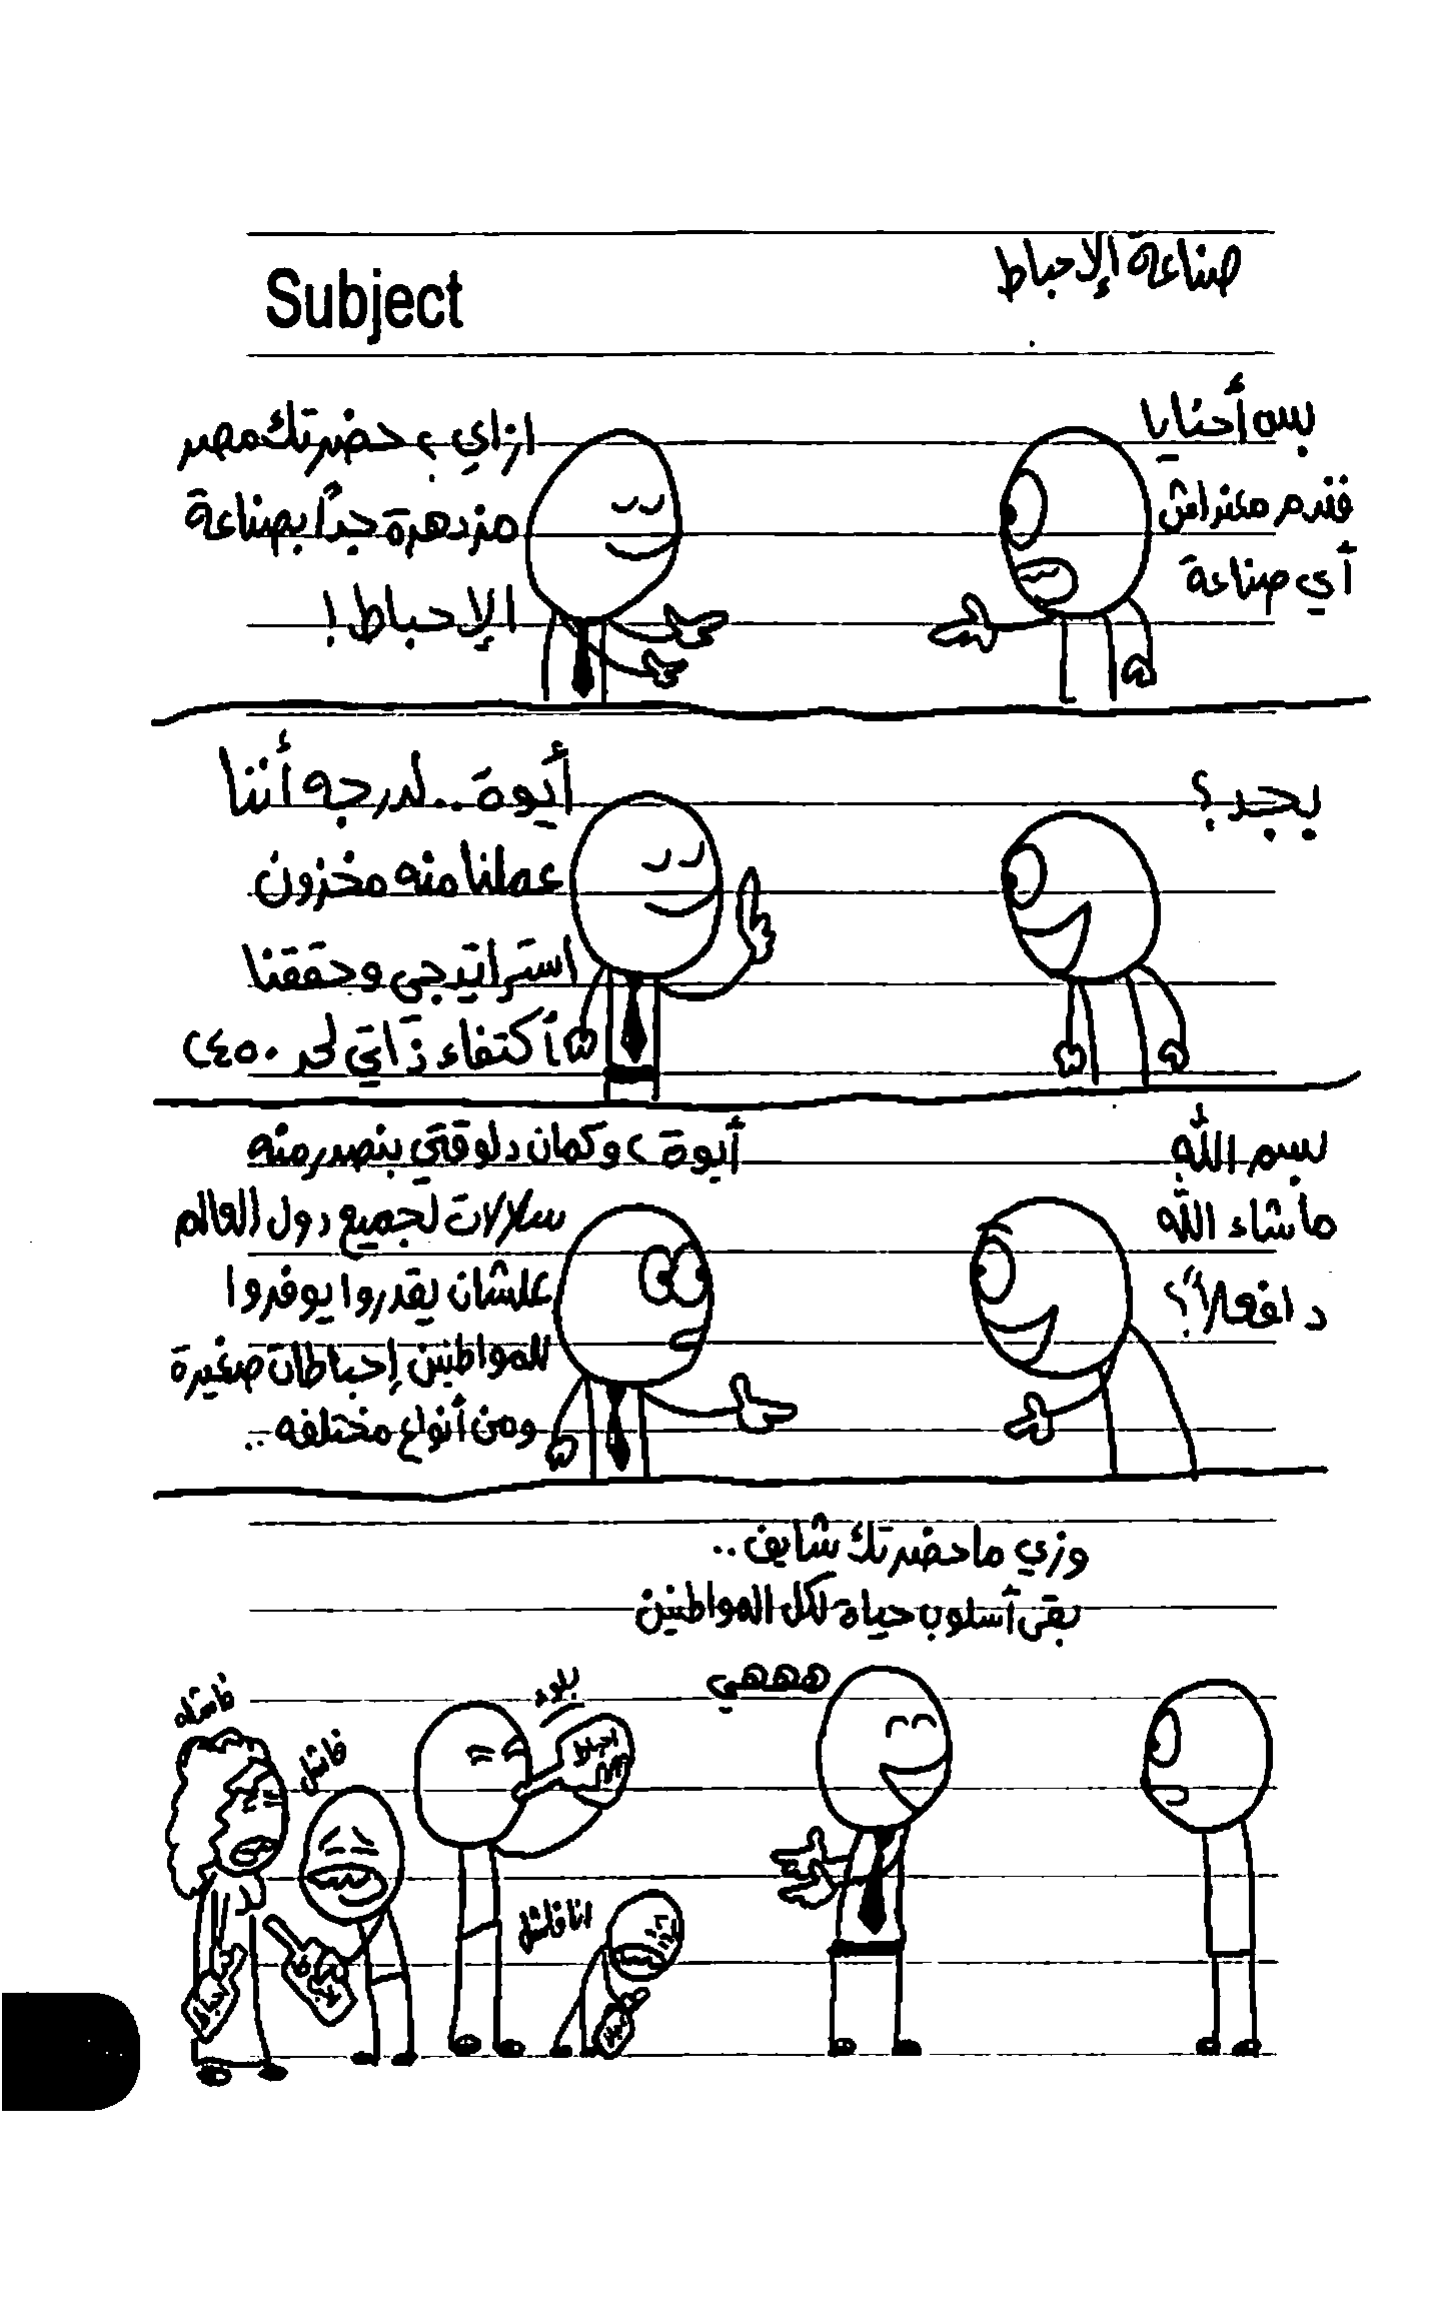 صناعة الإحباط
Subject
بس أحنا يا
فندم معندناش
أي صناعة
ازاي، حضرتك مصر
مزدهرة جداً بصناعة
الإحباط!
بجد؟
أيوة.. لدرجه أننا
عملنا منه مخزون
استراتيجي وحققنا
أكتفاء ذاتي لحد ٢٤٥٠
بسم الله
ما شاء الله
دا فعلاً؟
أيوة، وكمان دلوقتي بنصدر منه
سلالات لجميع دول العالم
علشان يقدروا يوفروا
للمواطنين إحباطات صغيرة
ومن أنواع مختلفه..
وزي ما حضرتك شايف..
بقى أسلوب حياة لكل المواطنين
ههههي
احباط
فاشله
فاشل
انا فاشل